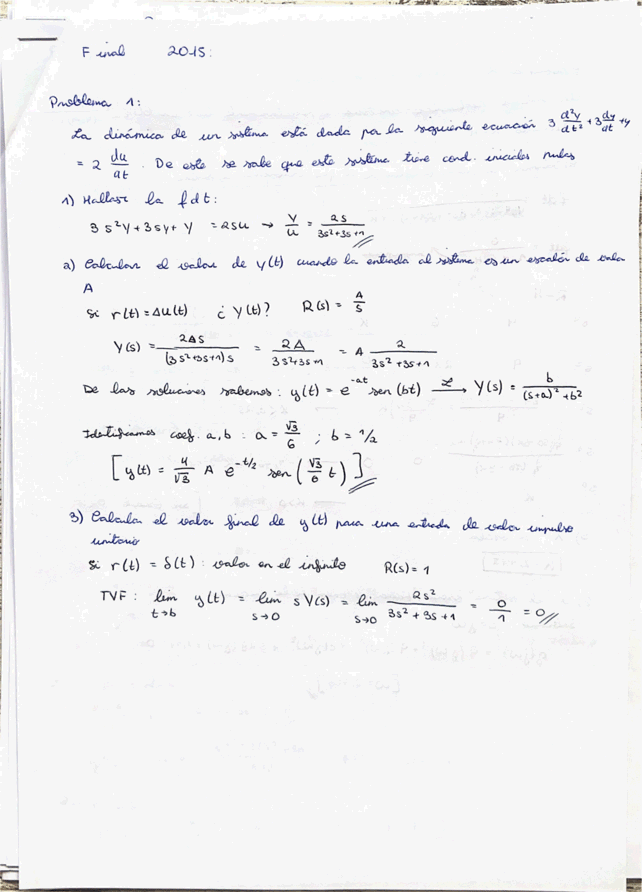 Final 2015:
Problema 1:
La dinámica de un sistema está dada por la siguiente ecuación 3 d²y/dt² + 3 dy/dt + y
= 2 du/dt. De este se sabe que este sistema tiene cond. iniciales nulas
1) Hallase la fdt:
3s²Y+3sY+Y = 2sU → Y/U = 2s/(3s²+3s+1)
2) Calcular el valor de y(t) cuando la entrada al sistema es un escalón de valor
A
Si r(t)=Au(t) ¿Y(t)? R(s) = A/s
Y(s) = 2As/((3s²+3s+1)s) = 2A/(3s²+3s+1) = A 2/(3s²+3s+1)
De las soluciones sabemos: y(t) = e^-at sen(bt) ℒ→ Y(s) = b/((s+a)²+b²)
Identificamos coef. a,b: a = √3/6 ; b = 1/2
[y(t) = 4/√3 A e^-t/2 sen(√3/6 t)]
3) Calcular el valor final de y(t) para una entrada de valor impulso
unitario
Si r(t) = δ(t): valor en el infinito R(s)=1
TVF: lim t→∞ y(t) = lim s→0 sY(s) = lim s→0 2s²/(3s²+3s+1) = 0/1 = 0